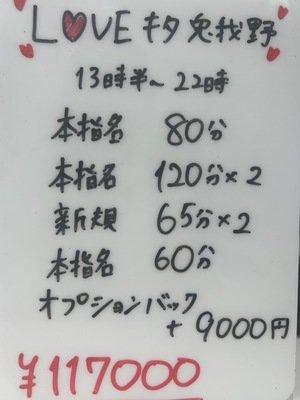 LOVE キタ兎我野
13時半~22時
本指名 80分
本指名 120分×2
新規 65分×2
本指名 60分
オプションバック
+9000円
¥117000